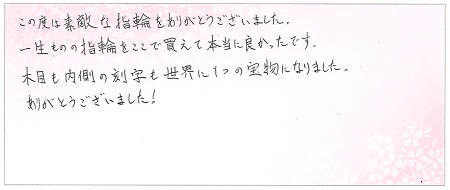 この度は素敵な指輪をありがとうございました。
一生ものの指輪をここで買えて本当に良かったです。
木目も内側の刻字も世界に1つの宝物になりました。
ありがとうございました!